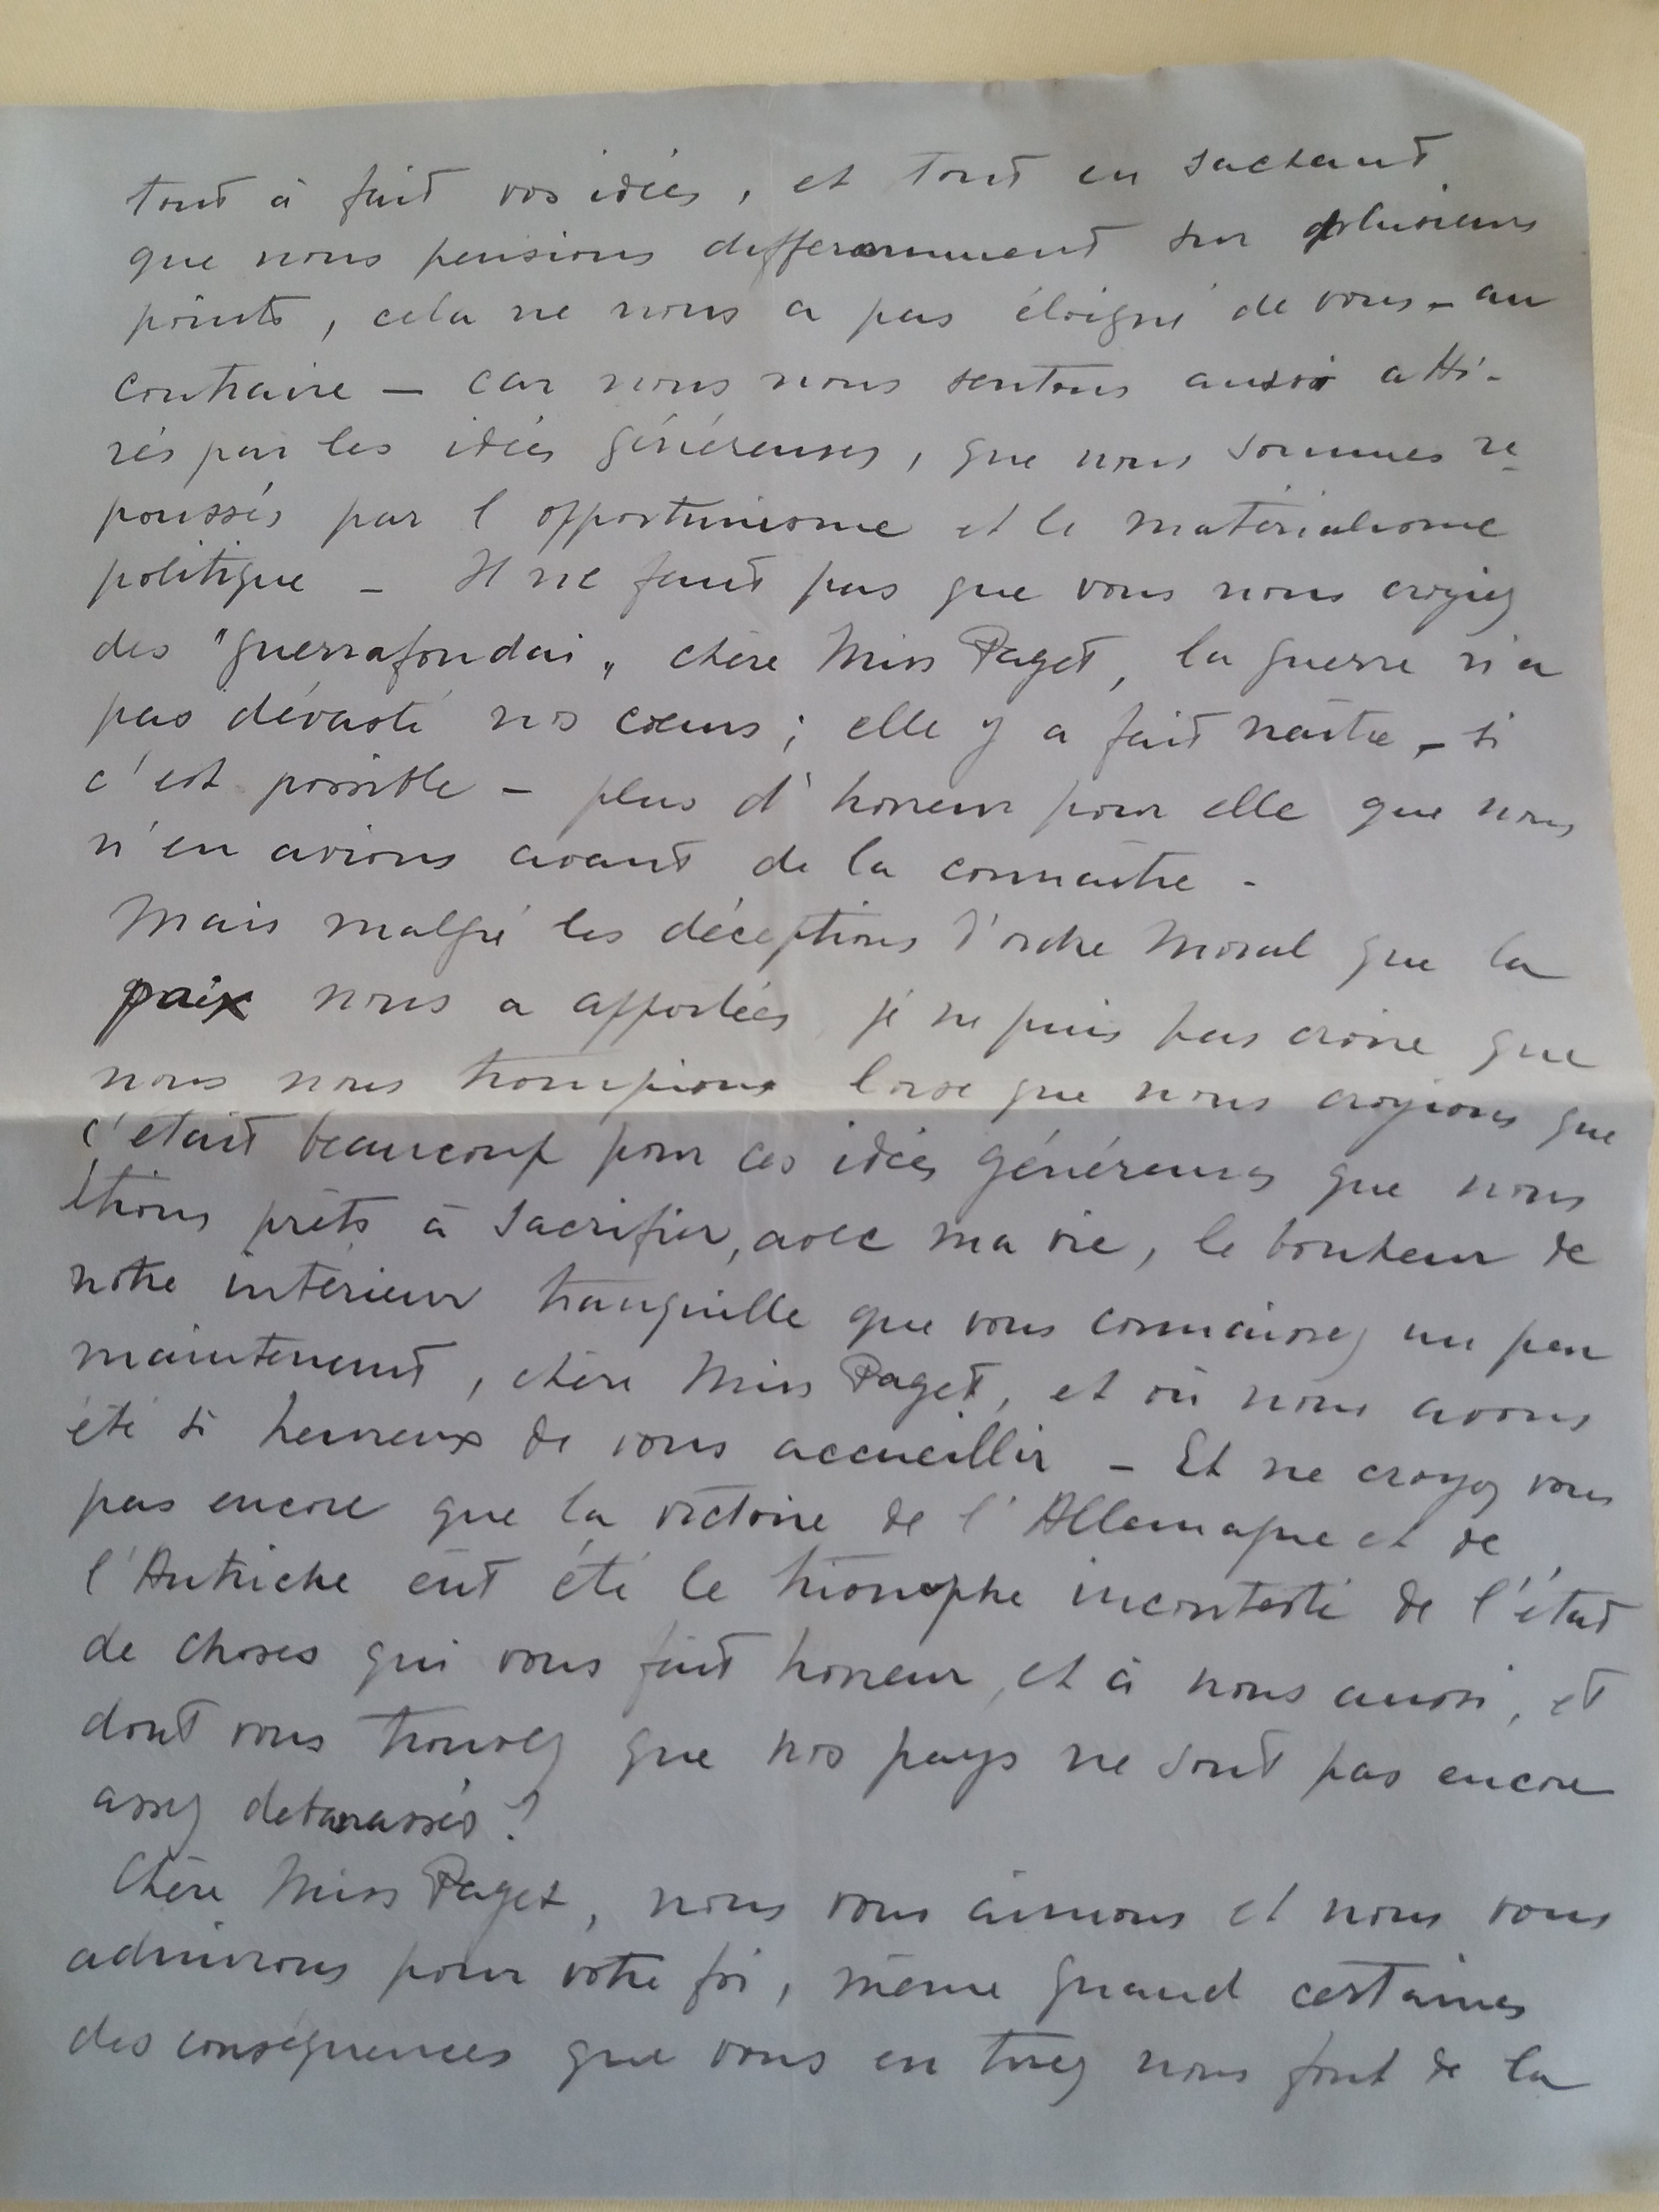 tout à fait vos idées, et tout en sachant
que nous pensions differemment sur plusieurs
points, cela ne nous a pas éloigné de vous – au
contraire – car nous nous sentons aussi atti-
rés par les idées généreuses, que nous sommes re
poussés par l'opportunisme et le matérialisme
politique – Il ne faut pas que vous nous croyiez
des "guerrafondai„ chère Miss Paget, la guerre n'a
pas dévasté nos cœurs; elle y a fait naître – si
c'est possible – plus d'horreur pour elle que nous
n'en avions avant de la connaître –
Mais malgré les déceptions d'ordre moral que la
paix nous a apportées je ne puis pas croire que
nous nous trompions lorsque nous croyions que
c'était beaucoup pour ces idées généreuses que nous
étions prêts à sacrifier, avec ma vie, le bonheur de
notre intérieur tranquille que vous connaissez un peu
maintenant, chère Miss Paget, et où nous avons
été si heureux de vous accueillir – Et ne croyez vous
pas encore que la victoire de l'Allemagne et de
l'Autriche eût été le triomphe incontesté de l'état
de choses qui vous fait horreur, et à nous aussi, et
dont vous trouvez que nos pays ne sont pas encore
assez debarassés?
Chère Miss Paget, nous vous aimons et nous vous
admirons pour votre foi, même quand certaines
des conséquences que vous en tirez nous font de la